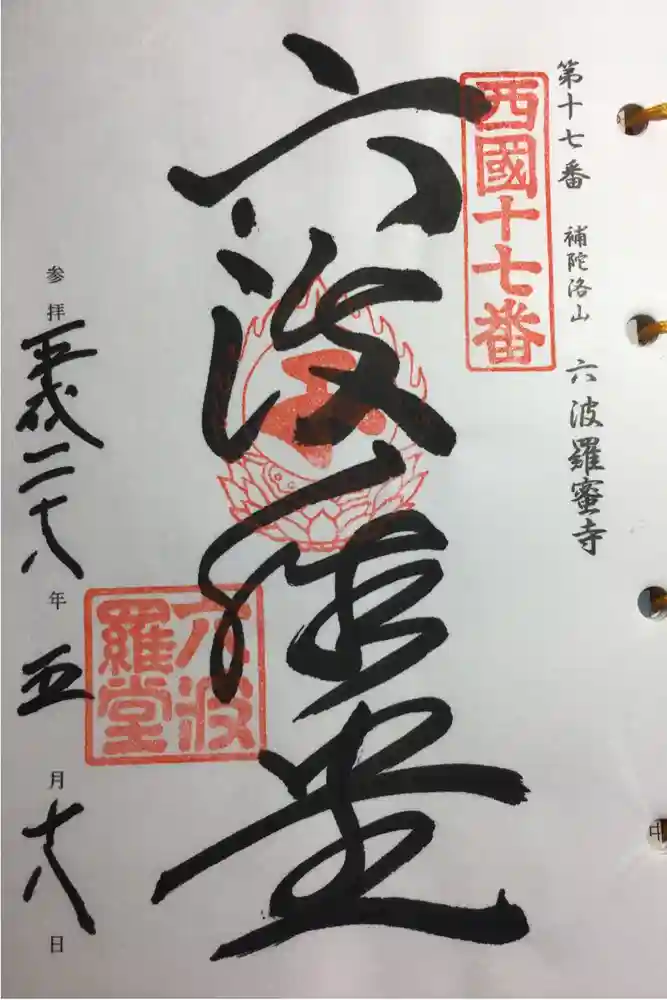 第十七番 補陀洛山 六波羅蜜寺
西國十七番
六波羅堂
六波羅堂
参拝 平成二十八年 五月十八日